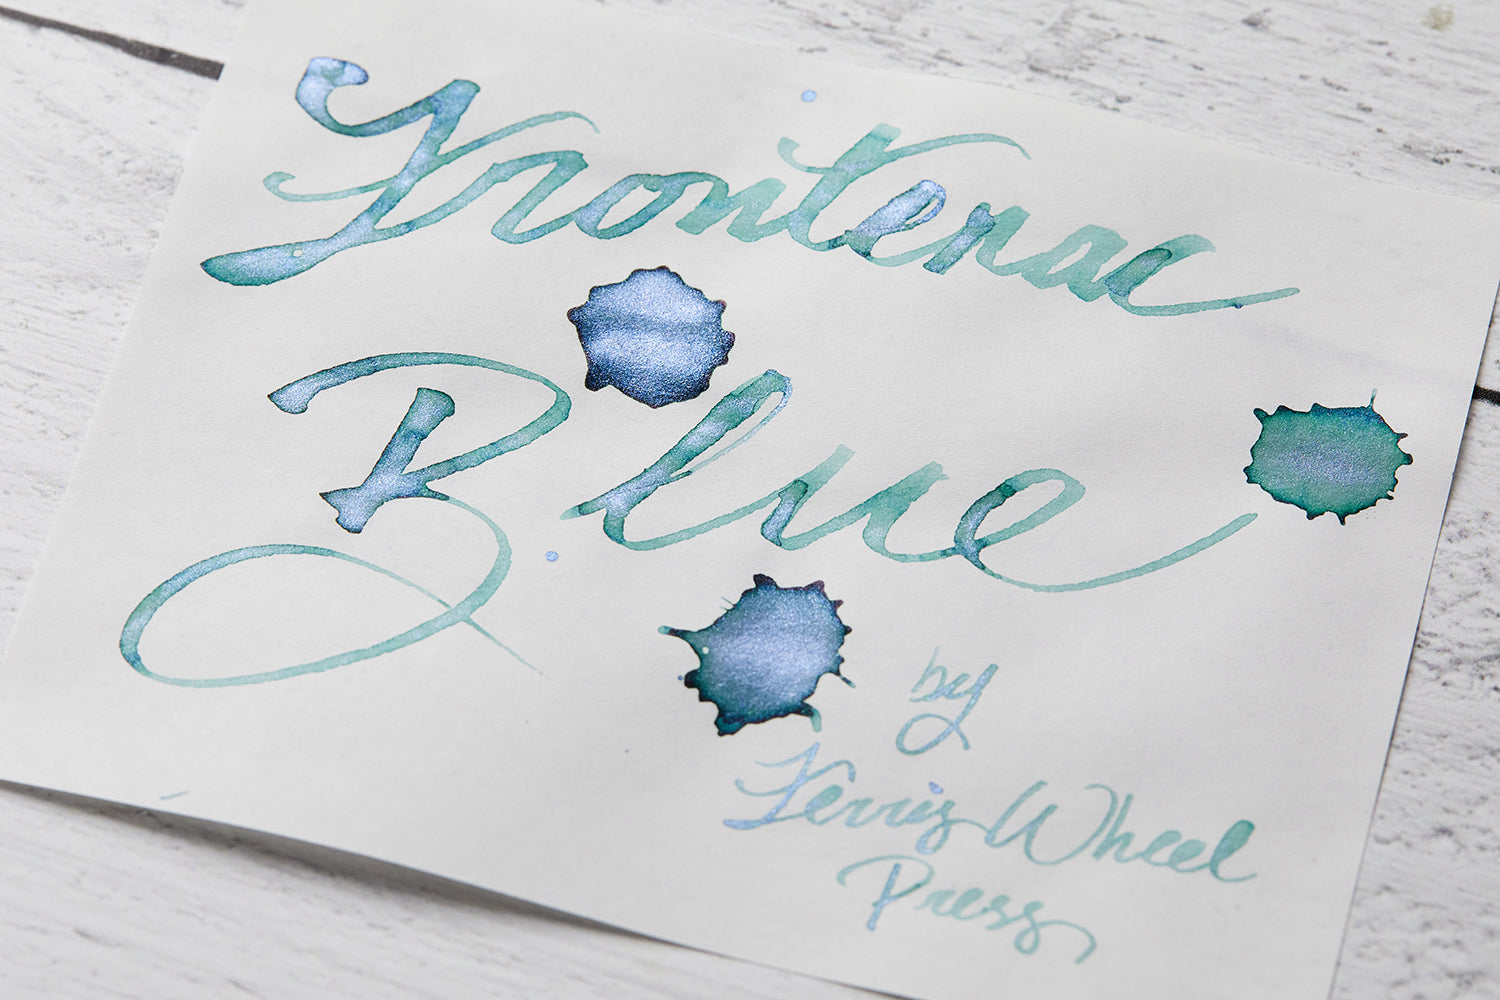 Frontenac
Blue
by
Ferris Wheel
Press